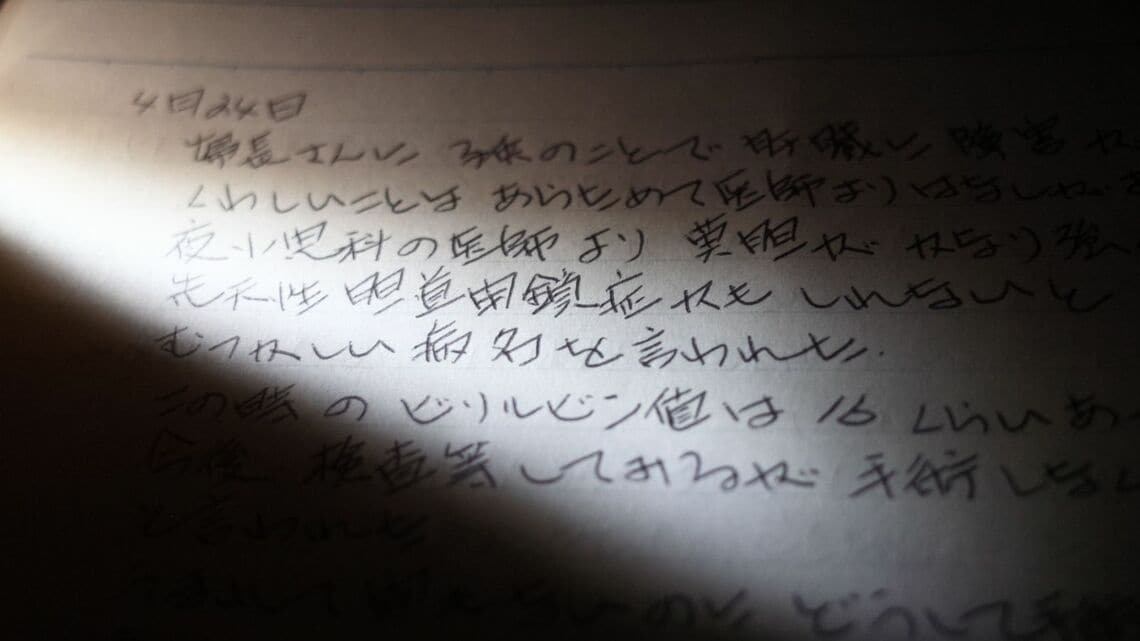 4月24日
婦長さんに 子供のことで 肝臓に 障害が
くわしいことは あらためて医師より はなしが
夜小児科の医師より 黄胆が かなり強
先天性胆道閉鎖症かも しれないと
むつかしい 病名を言われた.
この時の ビリルビン値は 16 くらいあ
今後 検査等してみるが 手術しな
と言われた
うまれて 間もないのに どうして手術